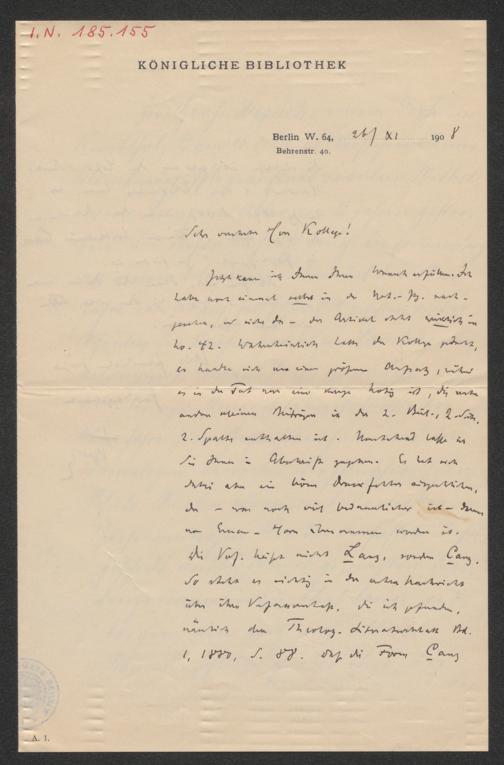 I.N. 185.155
KÖNIGLICHE BIBLIOTHEK
Berlin W. 64, 26/XI 1908
Behrenstr. 40.
Sehr verehrter Herr Kollege!
Jetzt kann ich Ihnen Ihren Wunsch erfüllen. Ich
habe noch einmal in der Nat.-Ztg. nach-
gesehen, und siehe da – der Artikel steht wirklich in
No. 42. Wahrscheinlich hatte der Kollege gedacht,
es handle sich um einen größeren Aufsatz, während
es in der Tat nur eine kurze Notiz ist, die unter
andern kleinen Beiträgen in der 2. Beil., 2. Seite,
2. Spalte enthalten ist. Umstehend lasse ich
sie Ihnen in Abschrift zugehen. Es hat sich
dabei aber ein böser Druckfehler eingeschlichen,
der – was noch viel bedauerlicher ist – dann
von Ihnen übernommen worden ist.
Die Verf. heißt nicht Lang, sondern Cang.
So steht es richtig in der ersten Nachricht
über ihre Verfasserschaft, die ich gefunden,
nämlich dem Theolog. Literaturblatt Bd.
1, 1880, S. 88. Daß die Form Cang
A. 1.